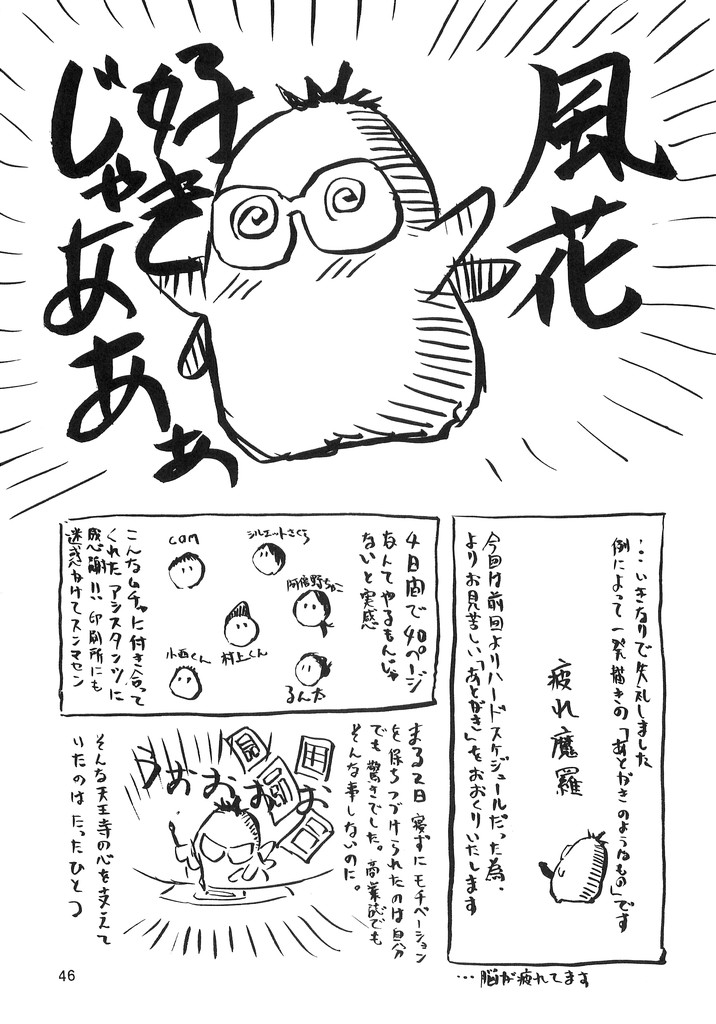 風花
好き
じゃ
あああ
‥いきなりで失礼しました
例によって一発描きの「あとがきのようなもの」です
疲れ魔羅
今回は前回よりハードスケジュールだった為、
よりお見苦しい「あとがき」をおおくりいたします
…脳が疲れてます
4日間で40ページ
なんてやるもんじゃ
ないと実感
シルエットさくら
cam
阿倍野ちゃこ
村上くん
小西くん
るん太
こんなムチャに付き合って
くれたアシスタンツに
感謝!!印刷所にも
迷惑かけてスンマセン
まる2日寝ずにモチベーション
を保ちつづけられたのは自分
でも驚きでした。商業誌でも
そんな事しないのに。
うおおおお
そんな天王寺の心を支えて
いたのはたったひとつ
46